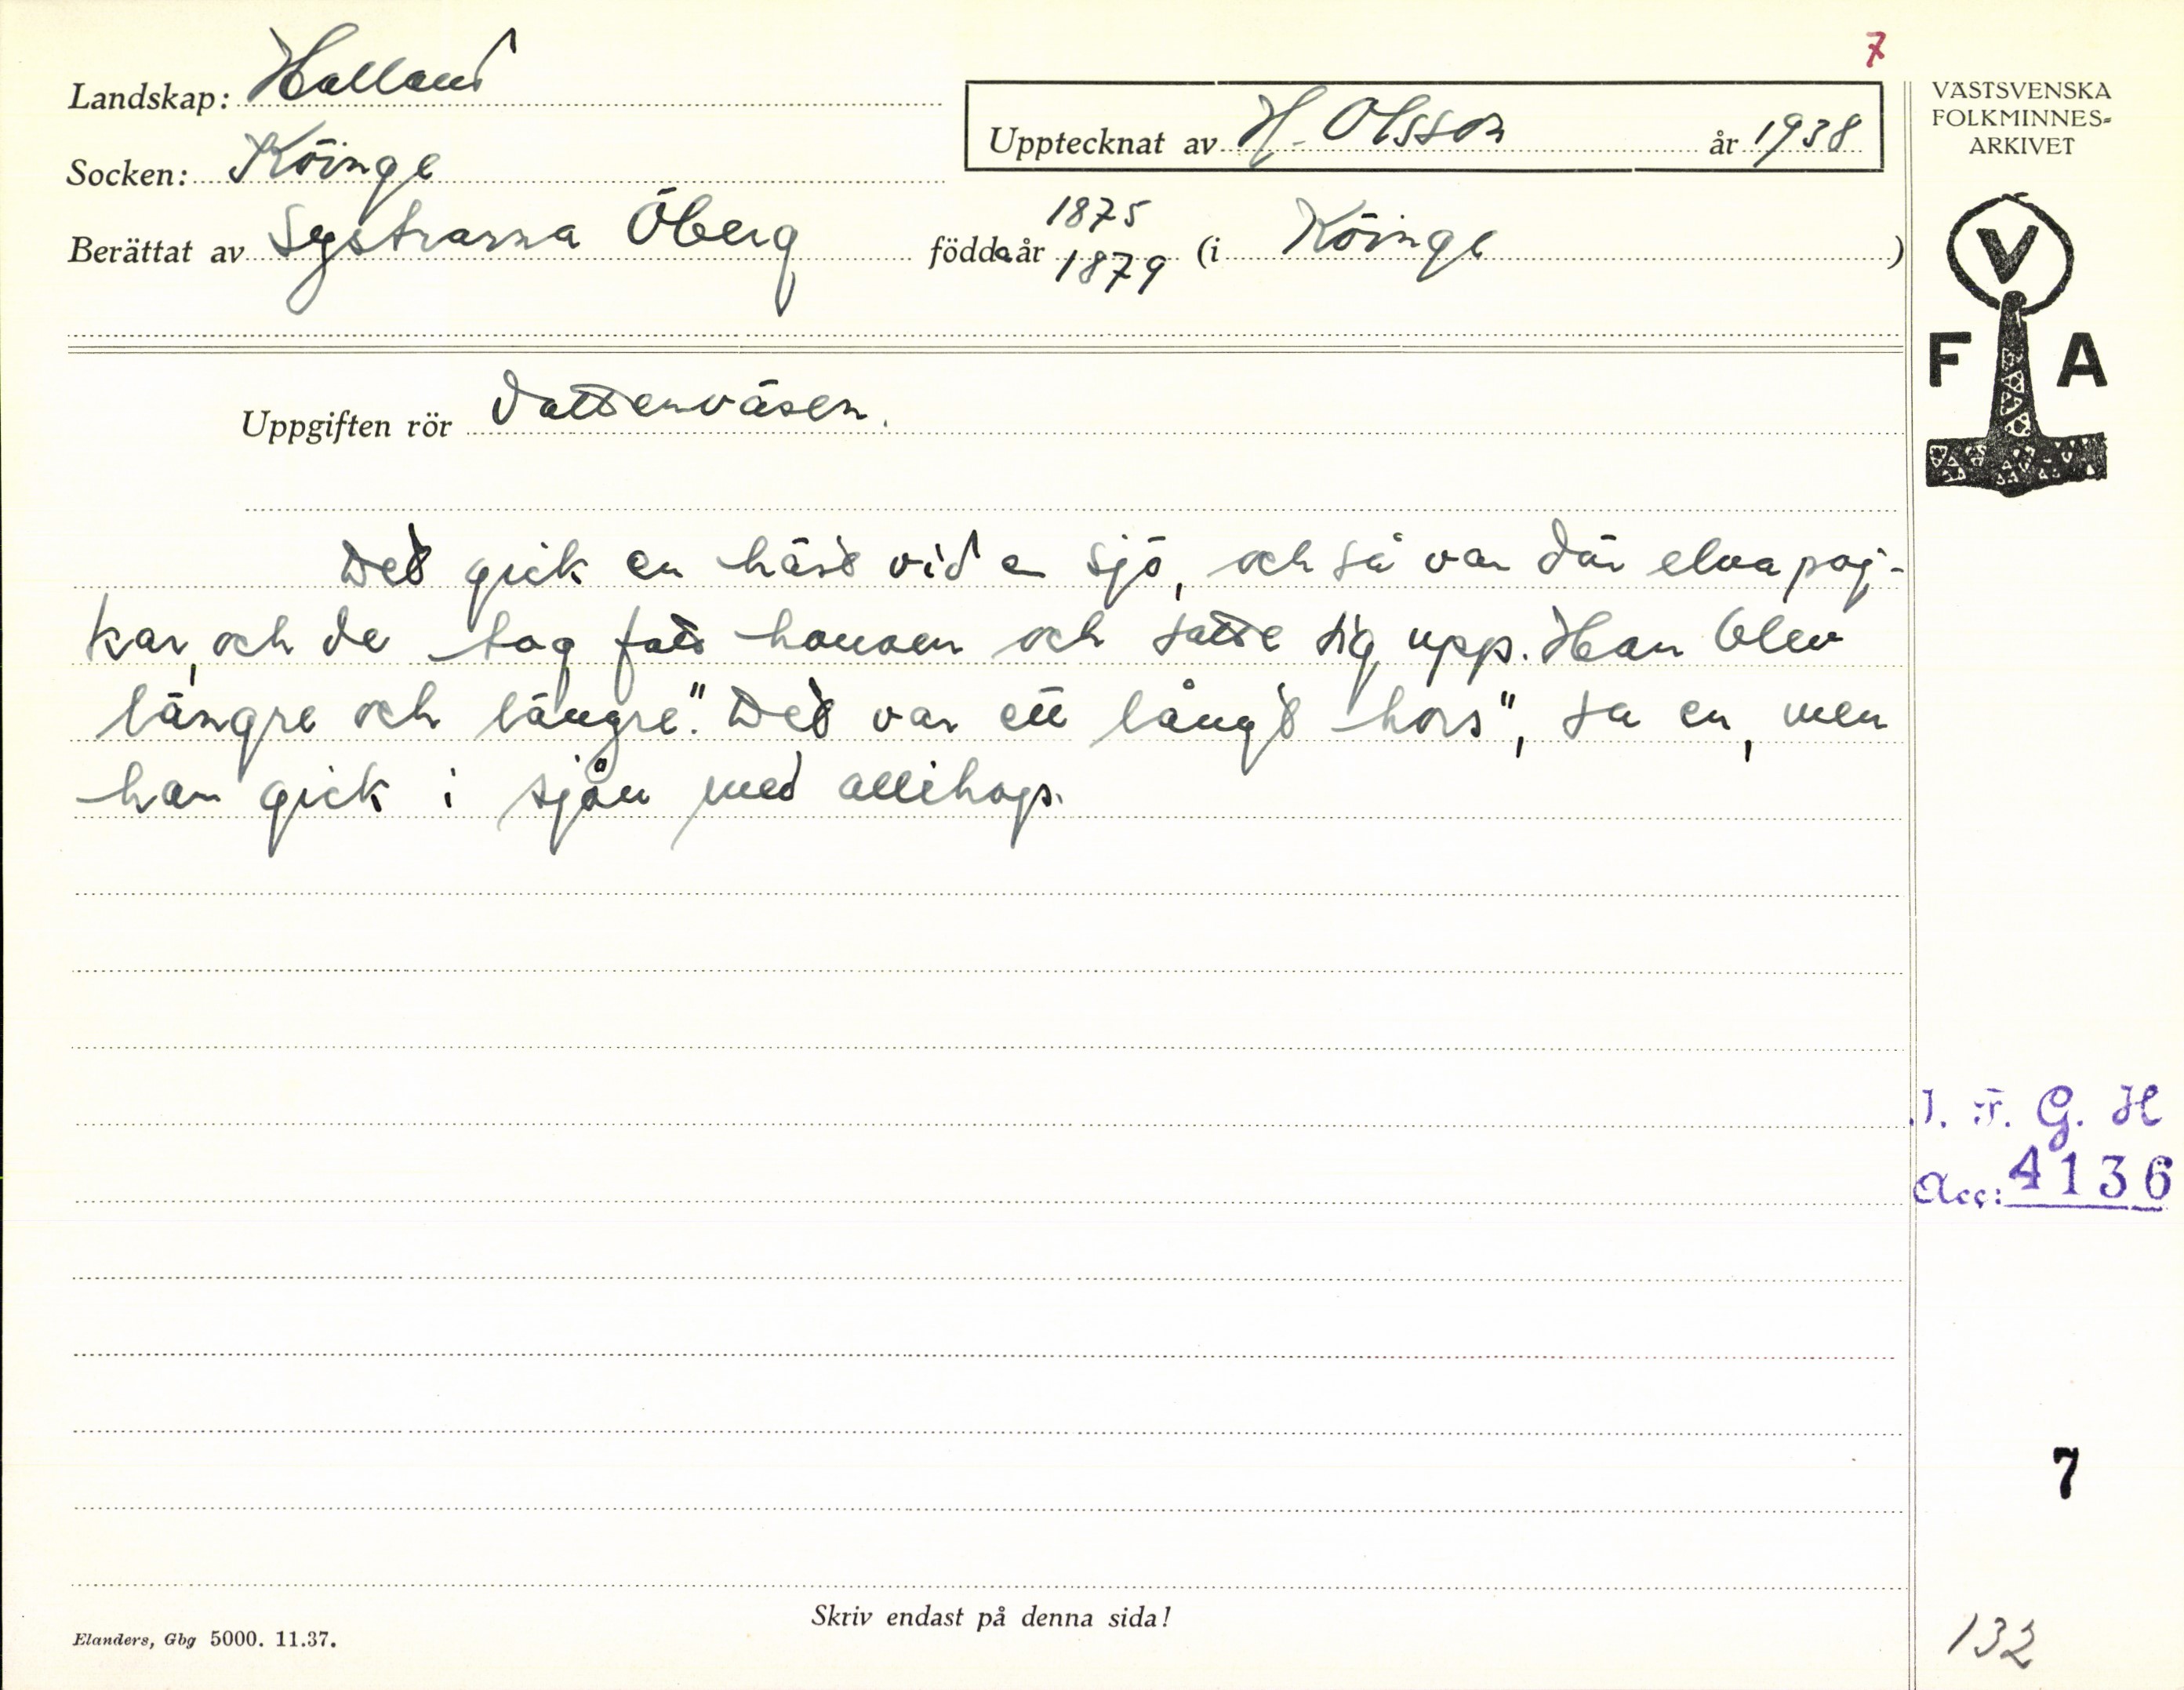 7
Landskap: Halland
Upptecknat av H. Olsson år 1938
VÄSTSVENSKA
FOLKMINNES-
ARKIVET
Socken: Köinge
Berättat av Systrarna Öberg födda år 1875 1879 (i Köinge)
V
F A
Uppgiften rör Vattenväsen.
Det gick en häst vid en sjö, och så var där elva poj-
kar, och de tog fatt honom och satte sig upp. Han blev
längre och längre. "Det var ett långt hors", sa en, men
han gick i sjön med allihops.
I. F. G. H
Acc: 4136
7
Skriv endast på denna sida!
Elanders, Gbg 5000. 11.37.
132